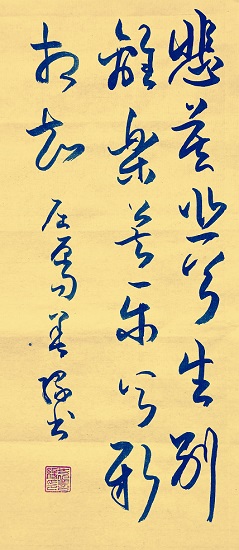 悲莫悲兮生別
離樂莫樂兮新
相知 書